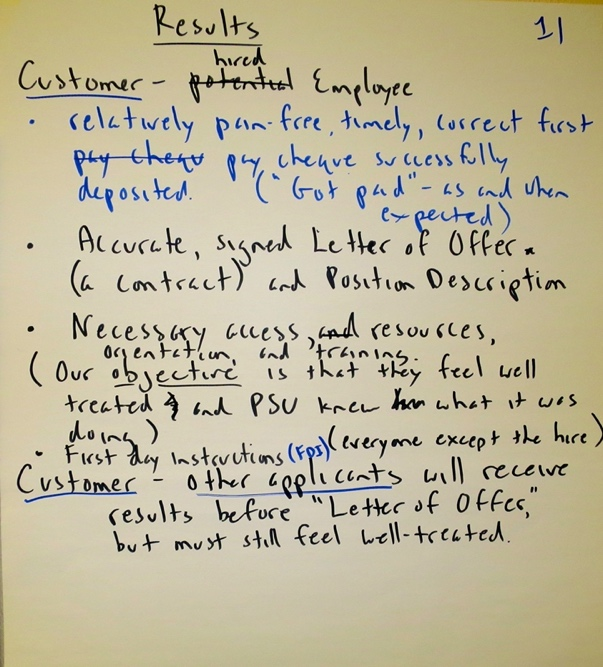 Results
11
hired
Customer - potential Employee
• relatively pain-free, timely, correct first
pay cheque pay cheque successfully
deposited. ("Got paid" - as and when
expected)
• Accurate, signed Letter of Offer
(a contract) and Position Description
• Necessary access, and resources,
orientation, and training.
(Our objective is that they feel well
treated and PSU knew what it was
doing)
• First day instructions (FDI) (everyone except the hire)
Customer - other applicants will receive
results before "Letter of Offer,"
but must still feel well-treated.